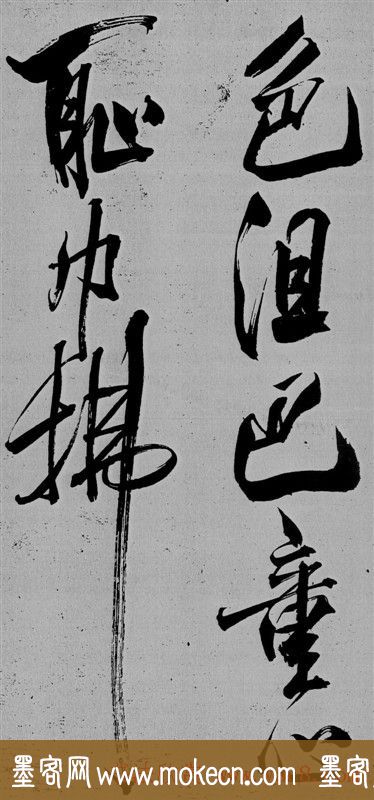 色沮巴童
恥巾拂
墨客网 www.mokecn.com 墨客网